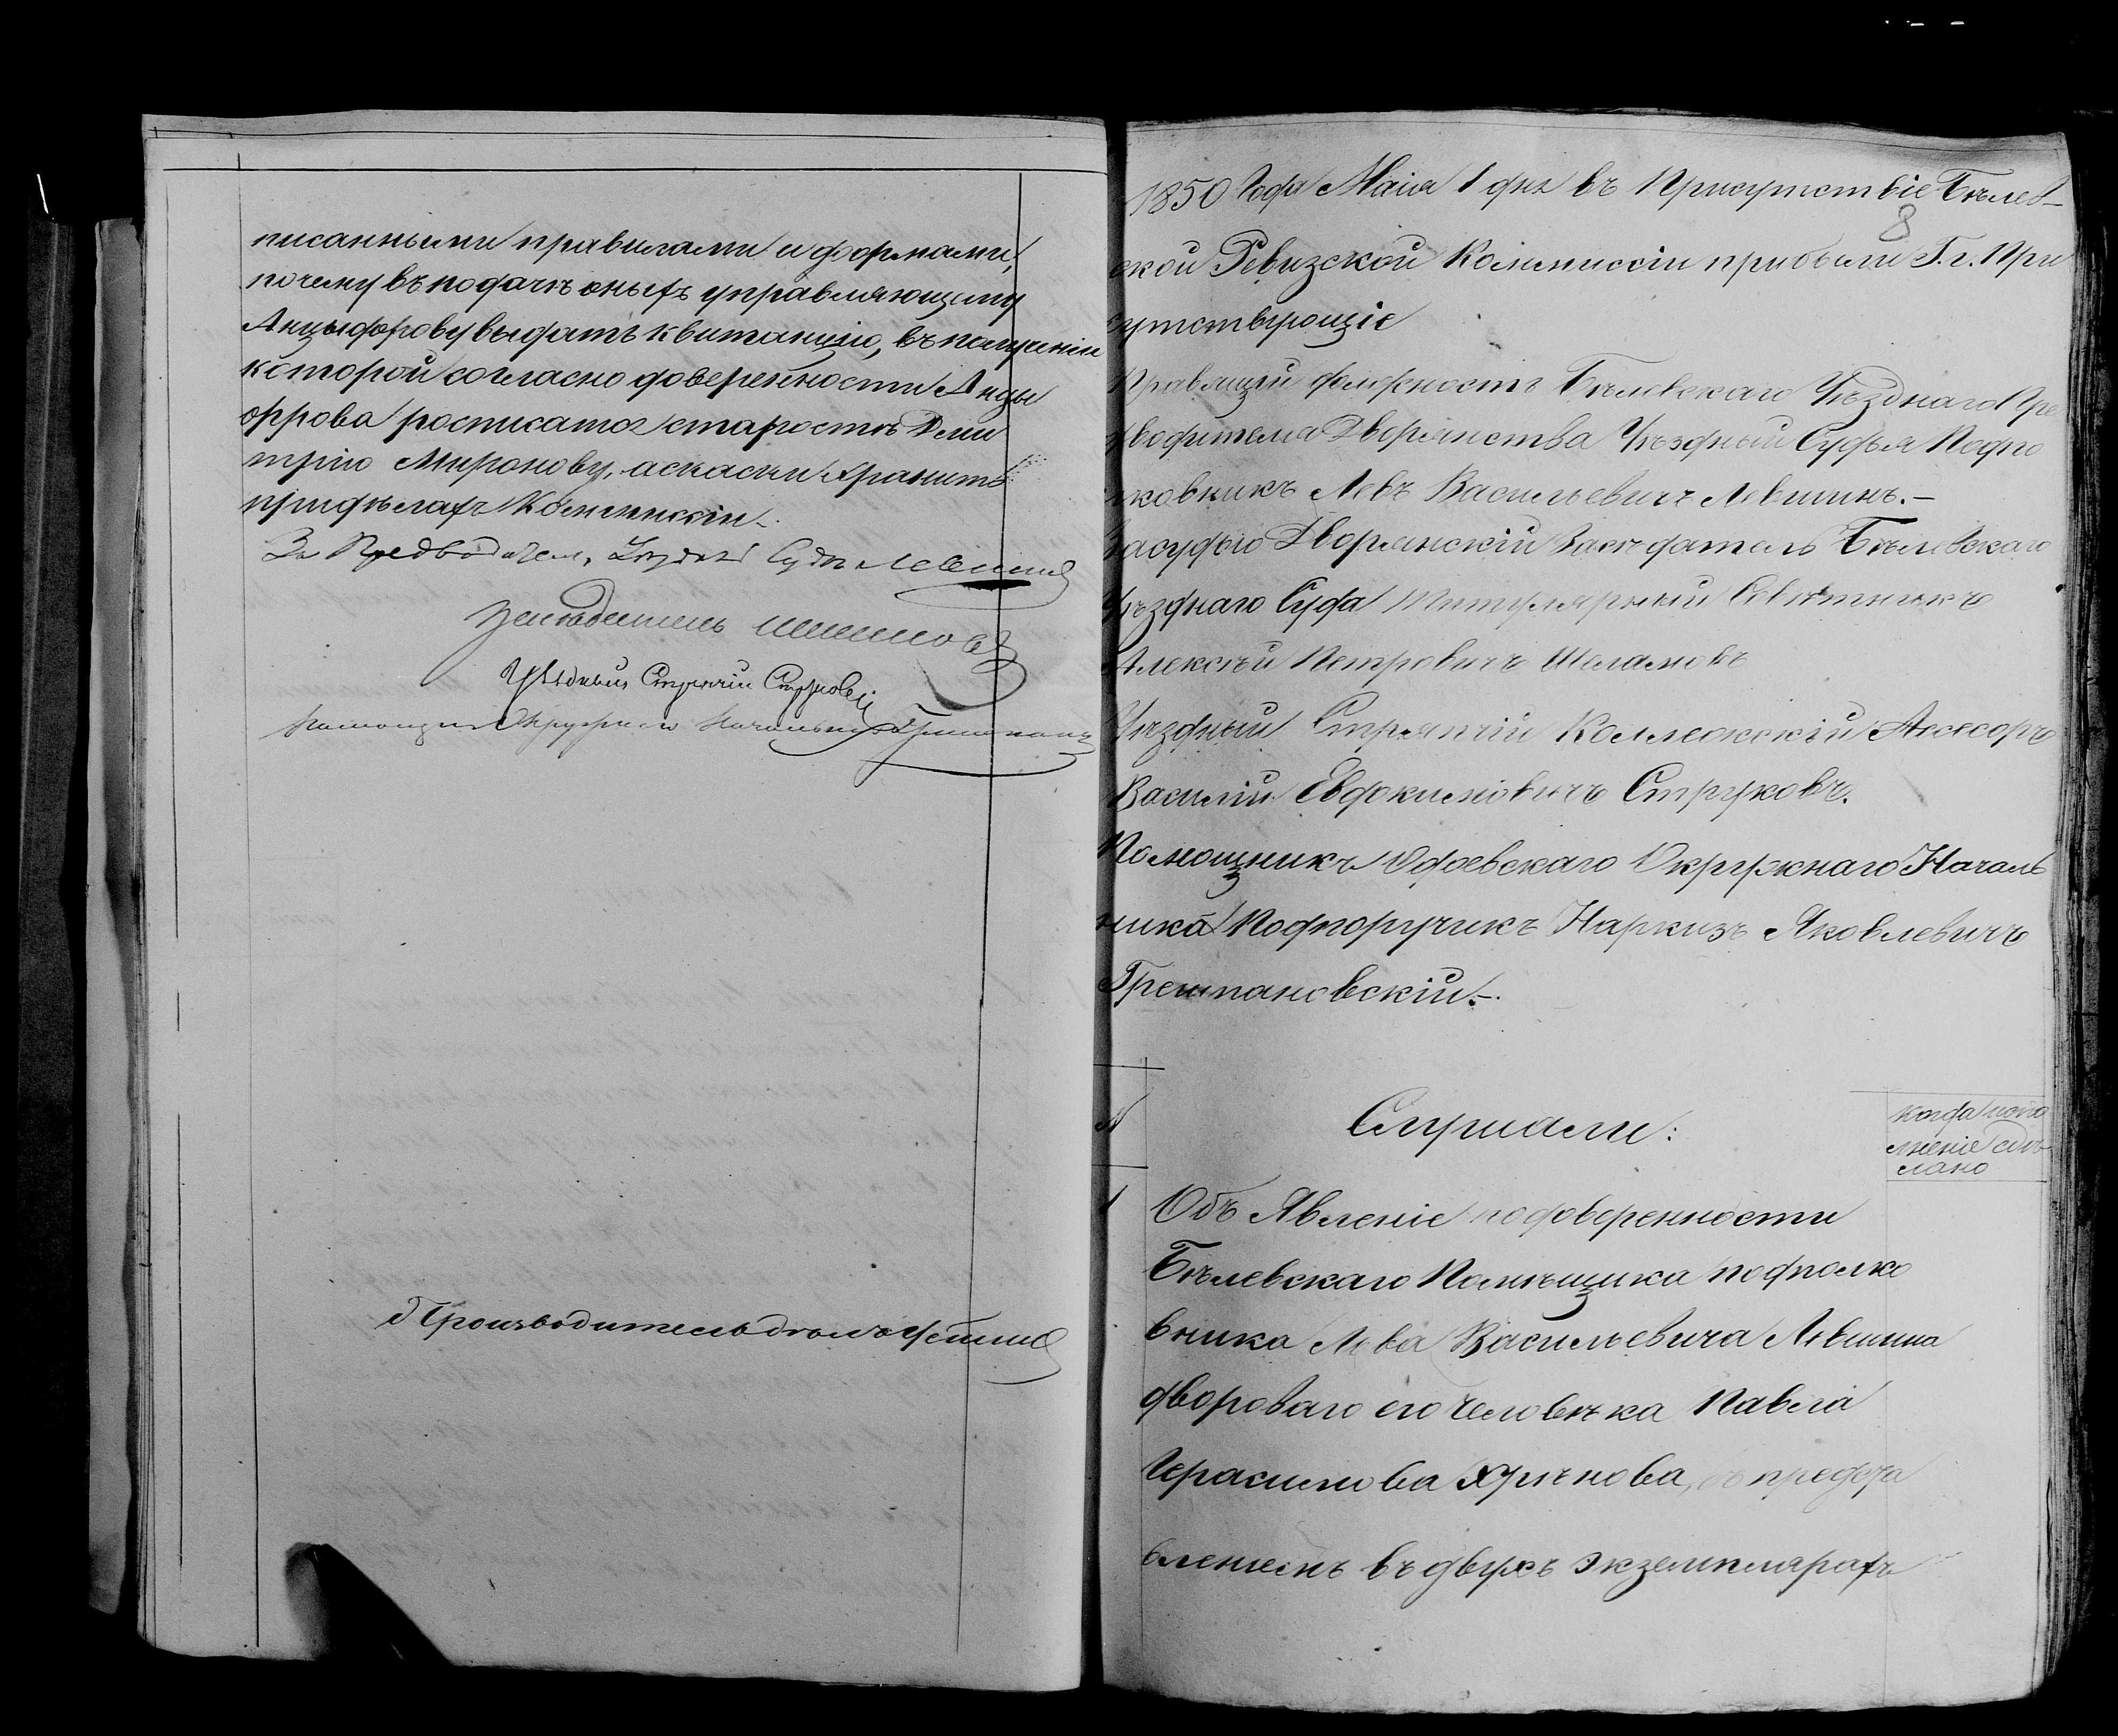 писанными правилами и формами,
почему въ подачѣ оныхъ управляющему
Анцыфорову выдать квитанцію, въ полученіи
которой согласно доверенности Анцы
форова росписатся старостѣ Дми
трію Миронову, а сказки хранить
при дѣлахъ Коммиссіи.
За Предводителя, Уездной Судья Левшинъ
Заседатель
Уѣздный Стряпчій Струковъ
Помощникъ Окружнаго Начальника
Производитель дѣлъ
1850 Года Маія 1 дня въ Присутствіе Бѣлев-
8
ской Ревизской Коммиссіи прибыли Г.г. При
сутствующіе
Правящій должность Бѣлевскаго Уѣзднаго Пре
дводителя Дворянства Уѣздный Судья Подпо
лковникъ Левъ Васильевичъ Левшинъ.-
За судью Дворянскій Засѣдатель Бѣлевскаго
Уѣзднаго Суда Титулярный Совѣтникъ
Алексѣй Петровичъ Шеламовъ
Уѣздный Стряпчій Коллежскій Асесоръ
Василій Евдокимовичъ Струковъ.
Помощникъ Одоевскаго Окружнаго Началь
ника Подпоручикъ Наркизъ Яковлевичъ
N
Слушали:
когда испо
лненіе сдѣ
лано
1
Объявленіе по доверенности
Бѣлевскаго Помѣщика подполко
вника Льва Васильевича Левшина
двороваго его человѣка Павла
Герасимова Хрѣнова, съ предста
вленіемъ въ двухъ экземплярахъ